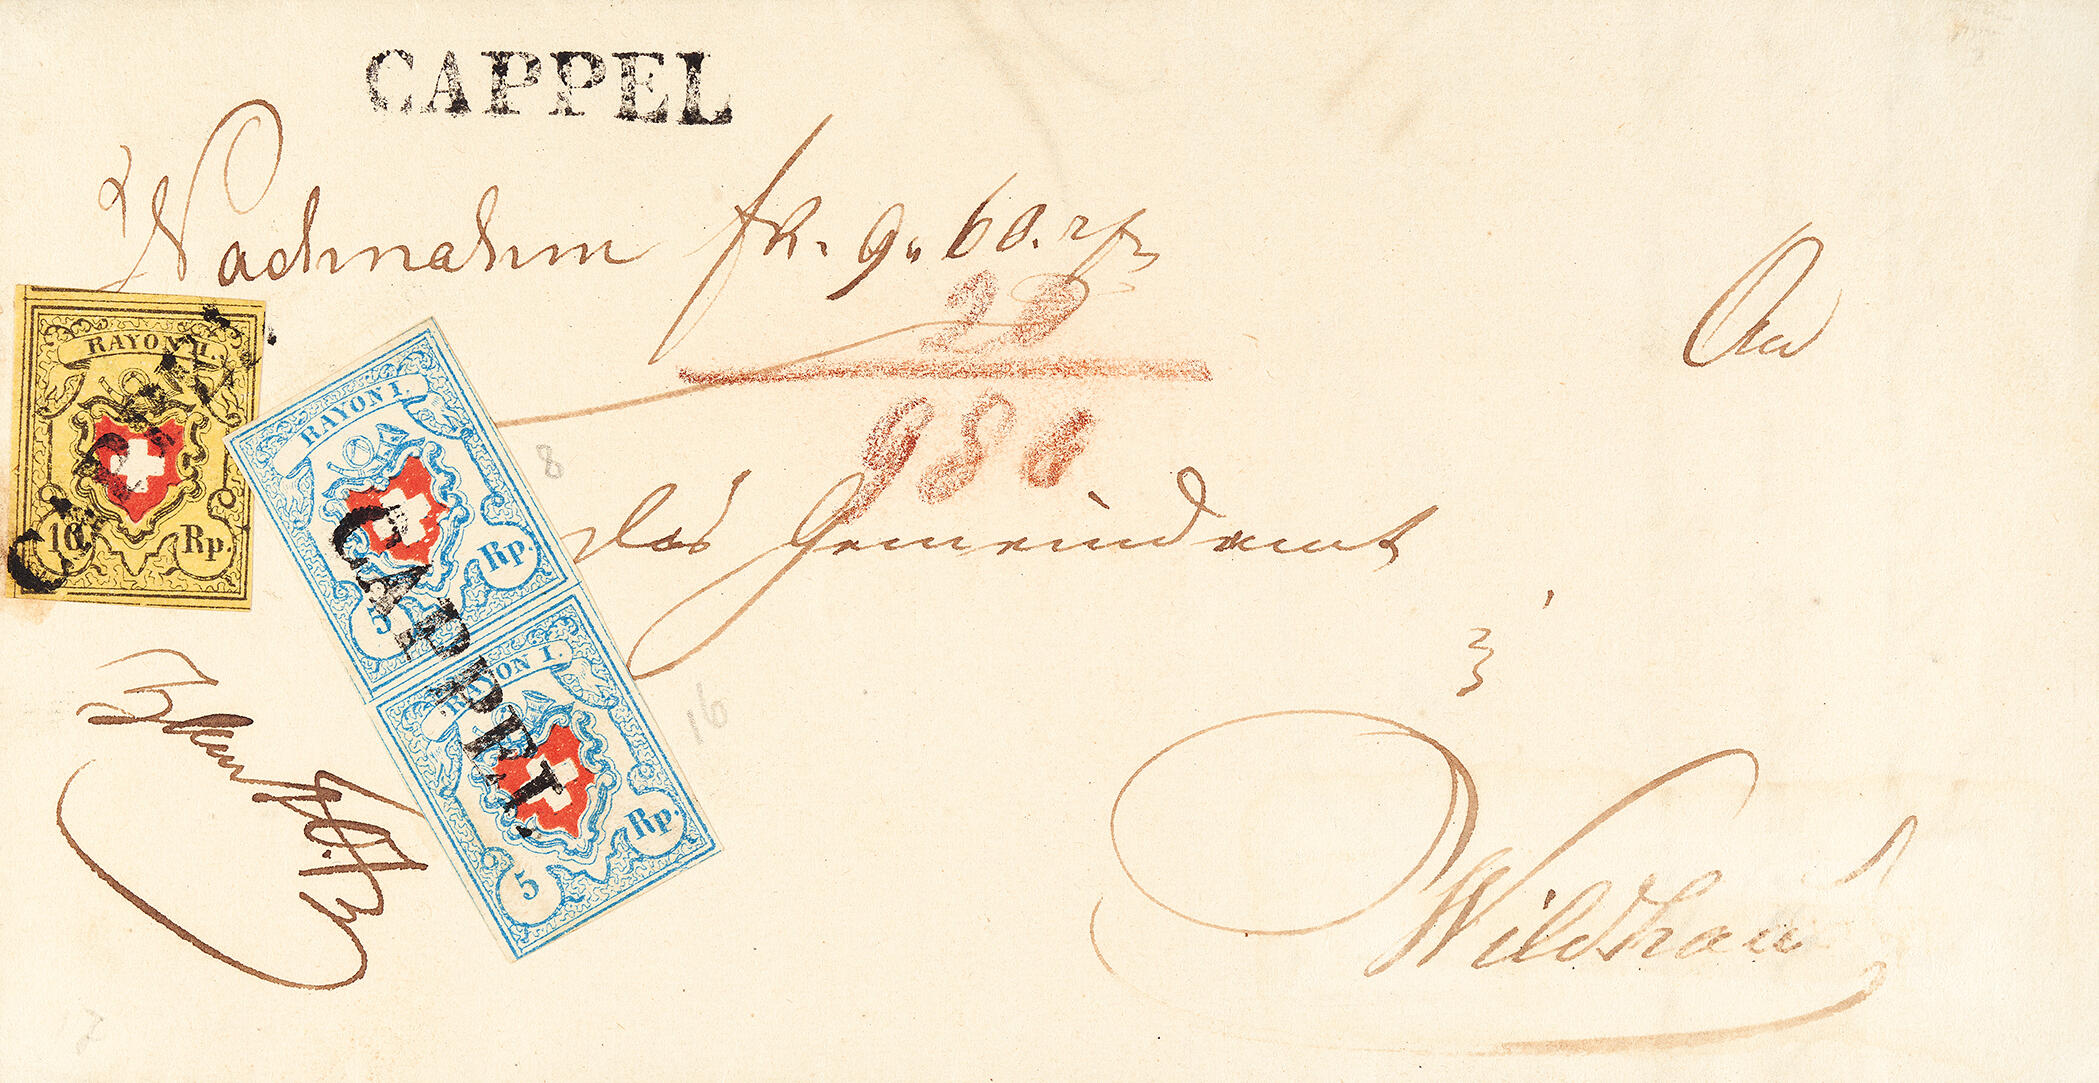 CAPPEL
Nachnahm frk. 9.. 60. rp
20
980
An
das Gemeindamt
in
Wildhaus
RAYON II.
10 Rp.
CAPPEL.
RAYON I.
5 Rp.
RAYON I.
5 Rp.
CAPPEL.
8
16